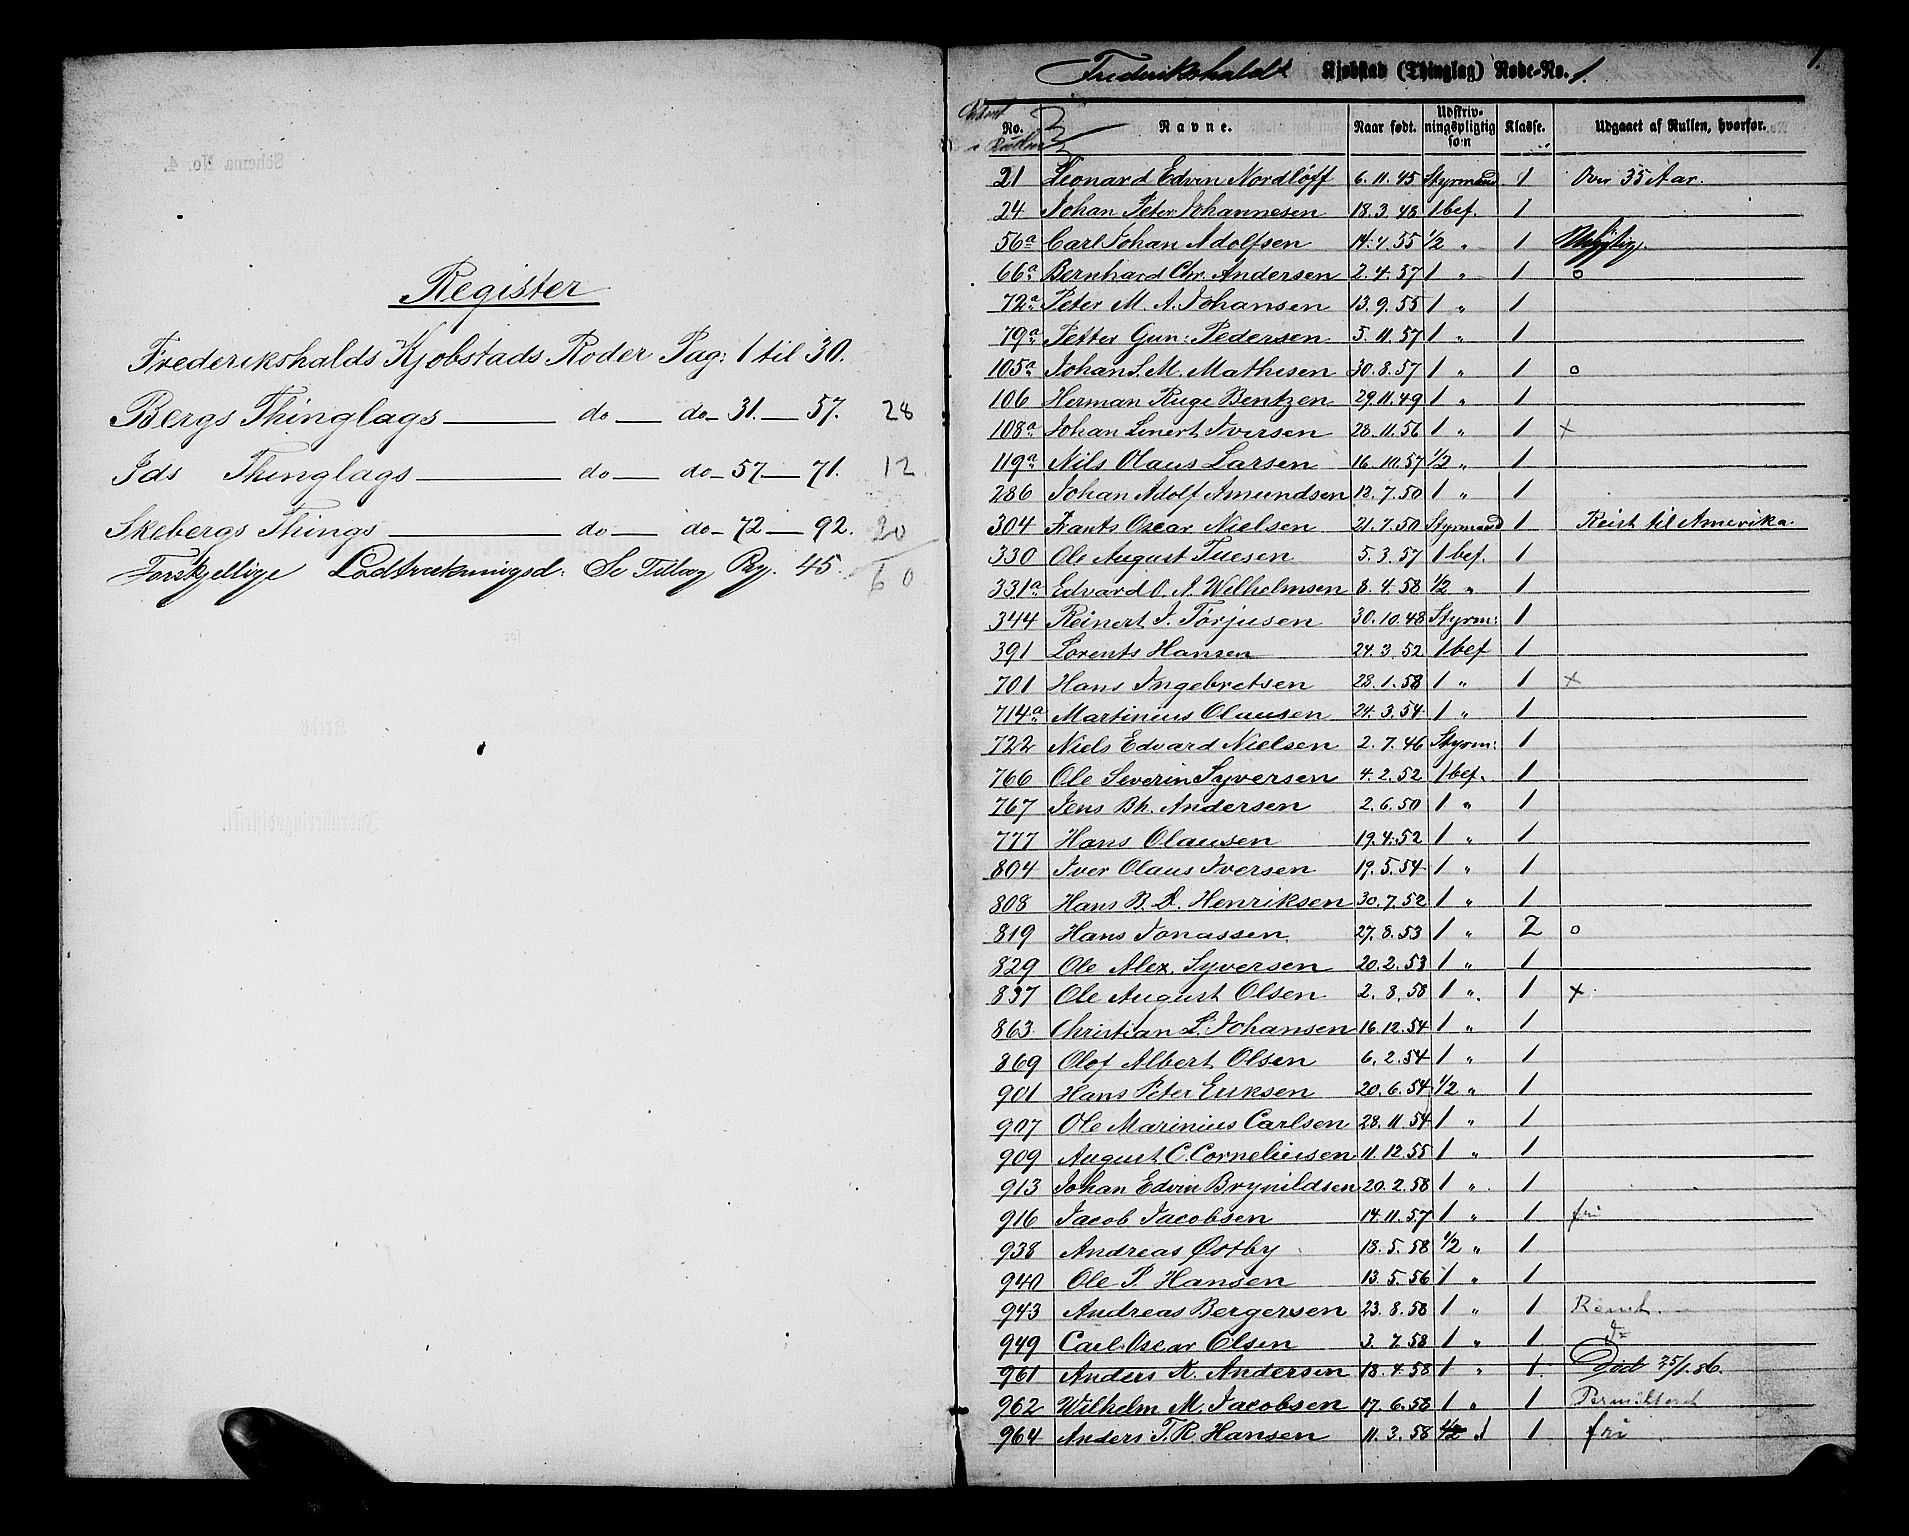 Register
Frederikshalds Kjøbstads Roder Pag: 1 til 30.
Bergs Thinglags — do — do — 31. — 57. 28
Ids Thinglags — do — do — 57 — 71. 12
Skebergs Things — do — do — 72 — 92. 20
Forskjellige Lodtrækningsd: Se Tillæg Pag. 45. 60
Schema No. 4.
Frederikshalds Kjøbstad (Thinglag) Rode-No. 1. 1.
No. Navne. Naar født. Udskrivningspligtig som Klasse. Udgaaet af Rullen, hvorfor.
21 Leonard Edvin Nordløff 6.11.45 Styrmand 1 Over 35 Aar.
24 Johan Peter Johannesen 18.3.48 1 bef. 1
56a Carl Johan Adolfsen 14.4.55 1/2 " 1
66a Bernhard Chr. Andersen 2.4.57 1 " 1 o
72a Peter M. A. Johansen 13.9.55 1 " 1
79a Petter Gun: Pedersen 5.11.57 1 " 1
105a Johan S. M. Mathisen 30.8.57 1 " 1 o
106 Herman Ruge Bentzen 29.11.49 1 " 1
108a Johan Linert Iversen 28.11.56 1 " 1 x
119a Nils Olaus Larsen 16.10.57 1/2 " 1
286 Johan Adolf Amundsen 12.7.50 1 " 1
304 Frants Oscar Nielsen 21.7.50 Styrmand 1 Reist til Amerika.
330 Ole August Tuesen 5.3.57 1 bef. 1
331a Edvard O. A. Wilhelmsen 8.4.58 1/2 " 1
344 Reinert J. Tørjusen 30.10.48 Styrm: 1
391 Lorents Hansen 24.3.52 1 bef 1
701 Hans Ingebretsen 28.1.58 1 " 1 x
714a Martinius Olausen 24.3.54 1 " 1
722 Niels Edvard Nielsen 2.7.46 Styrm: 1
766 Ole Severin Syversen 4.2.52 1 bef. 1
767 Jens Bh. Andersen 2.6.50 1 " 1
777 Hans Olausen 19.4.52 1 " 1
804 Iver Olaus Iversen 19.5.54 1 " 1
808 Hans B. D. Henriksen 30.7.52 1 " 1
819 Hans Jonassen. 27.8.53 1 " 2 o
829 Ole Alex. Syversen 20.2.53 1 " 1
837 Ole August Olsen 2.8.58 1 " 1 x
863 Christian L. Johansen 16.12.54 1 " 1
869 Olof Albert Olsen 6.2.54 1 " 1
901 Hans Peter Eriksen 20.6.54 1/2 " 1
907 Ole Marinius Carlsen 28.11.54 1 " 1
909 August C. Corneliusen 11.12.55 1 " 1
913 Johan Edvin Brynildsen 20.2.58 1 " 1
916 Jacob Jacobsen 14.11.57 1 " 1 fri
938 Andreas Østby 18.5.58 1/2 " 1
940 Ole P. Hansen 13.5.56 1 " 1
943 Andreas Bergersen 23.8.58 1 " 1 Rømt.
949 Carl Oscar Olsen 3.7.58 1 " 1 do
961 Anders K. Andersen 18.4.58 1 " 1. Død 25/1.86.
962 Wilhelm M. Jacobsen 17.6.58 1 " 1
964 Anders T. R. Hansen 11.3.58 1/2 1 1 fri